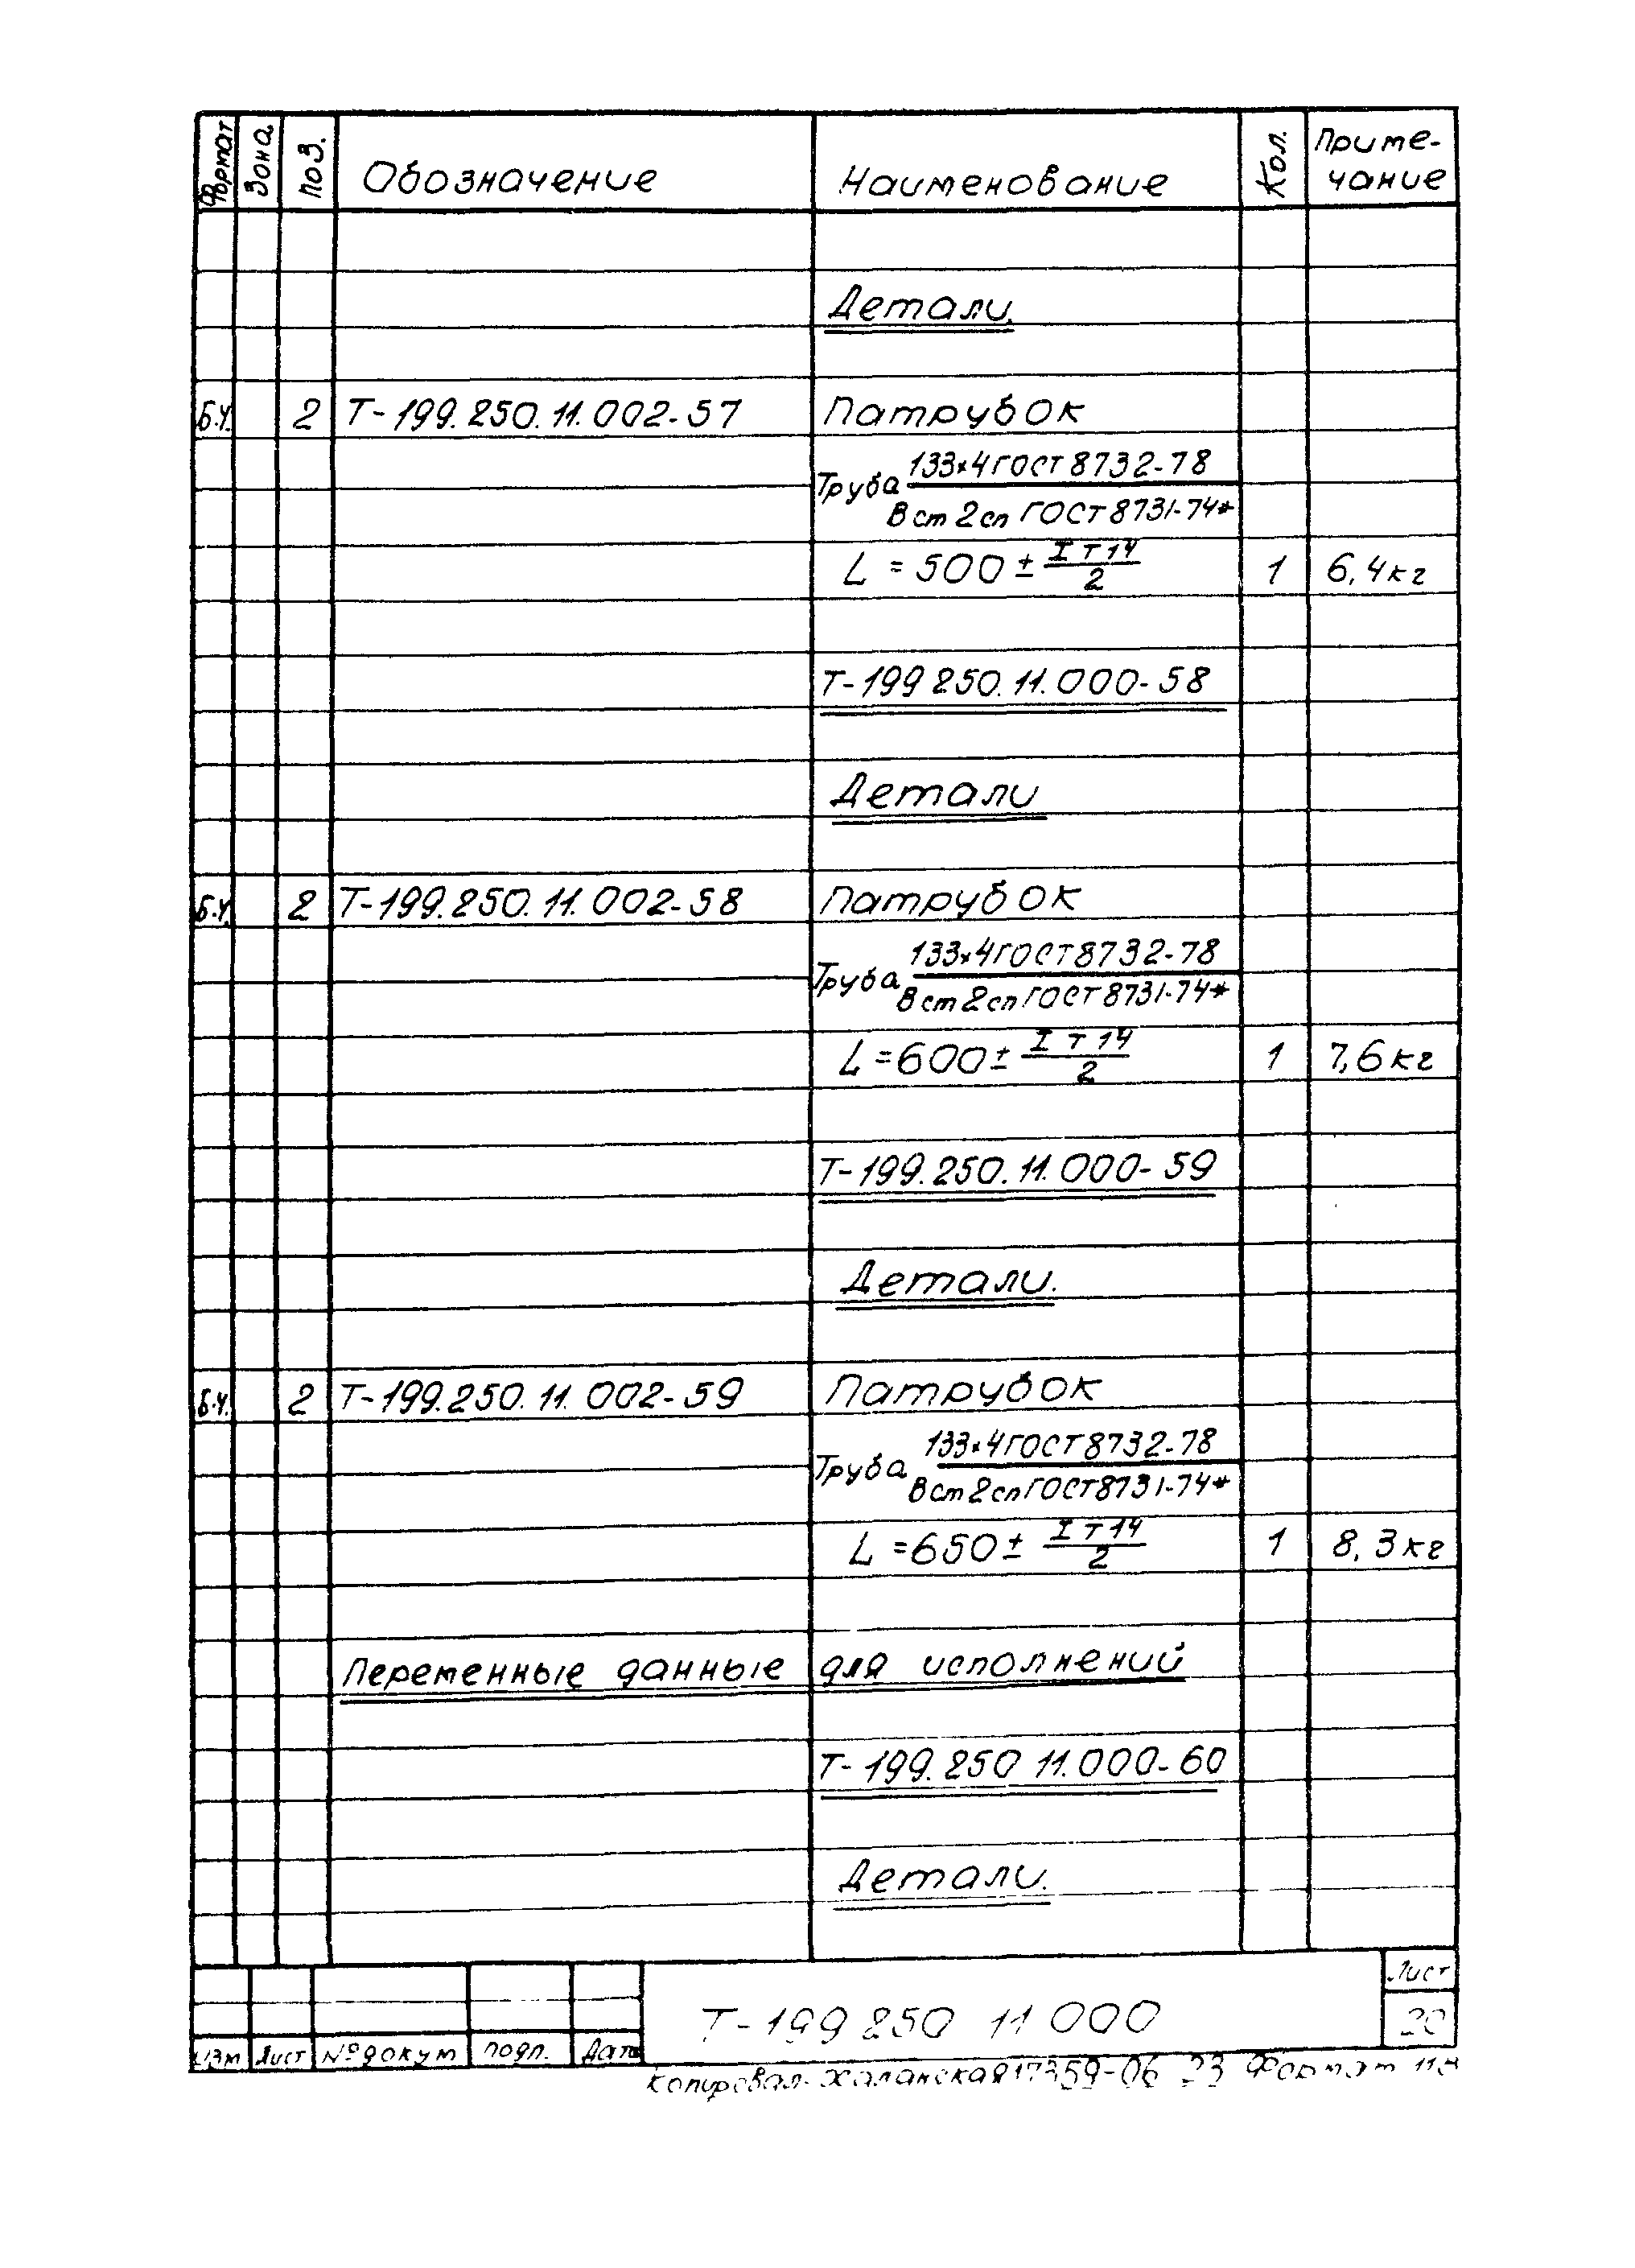 Формат Зона Поз. Обозначение Наименование Кол. Приме-
чание
Детали.
Б.Ч. 2 Т-199.250.11.002-57 Патрубок
Труба 133×4 ГОСТ 8732-78
В ст 2 сп ГОСТ 8731-74*
L = 500 ± IT14/2 1 6,4кг
Т-199 250.11.000-58
Детали
Б.Ч. 2 Т-199.250.11.002-58 Патрубок
Труба 133×4 ГОСТ 8732-78
В ст 2 сп ГОСТ 8731-74*
L = 600 ± IT14/2 1 7,6кг
Т-199.250.11.000-59
Детали.
Б.Ч. 2 Т-199.250.11.002-59 Патрубок
Труба 133×4 ГОСТ 8732-78
В ст 2 сп ГОСТ 8731-74*
L = 650 ± IT14/2 1 8,3кг
Переменные данные для исполнений
Т-199.250 11.000-60
Детали.
Т-199 250 11 000
Лист
20
Изм Лист № докум подп. Дата
Копировал- Халанская 17359-06 23 Формат 11